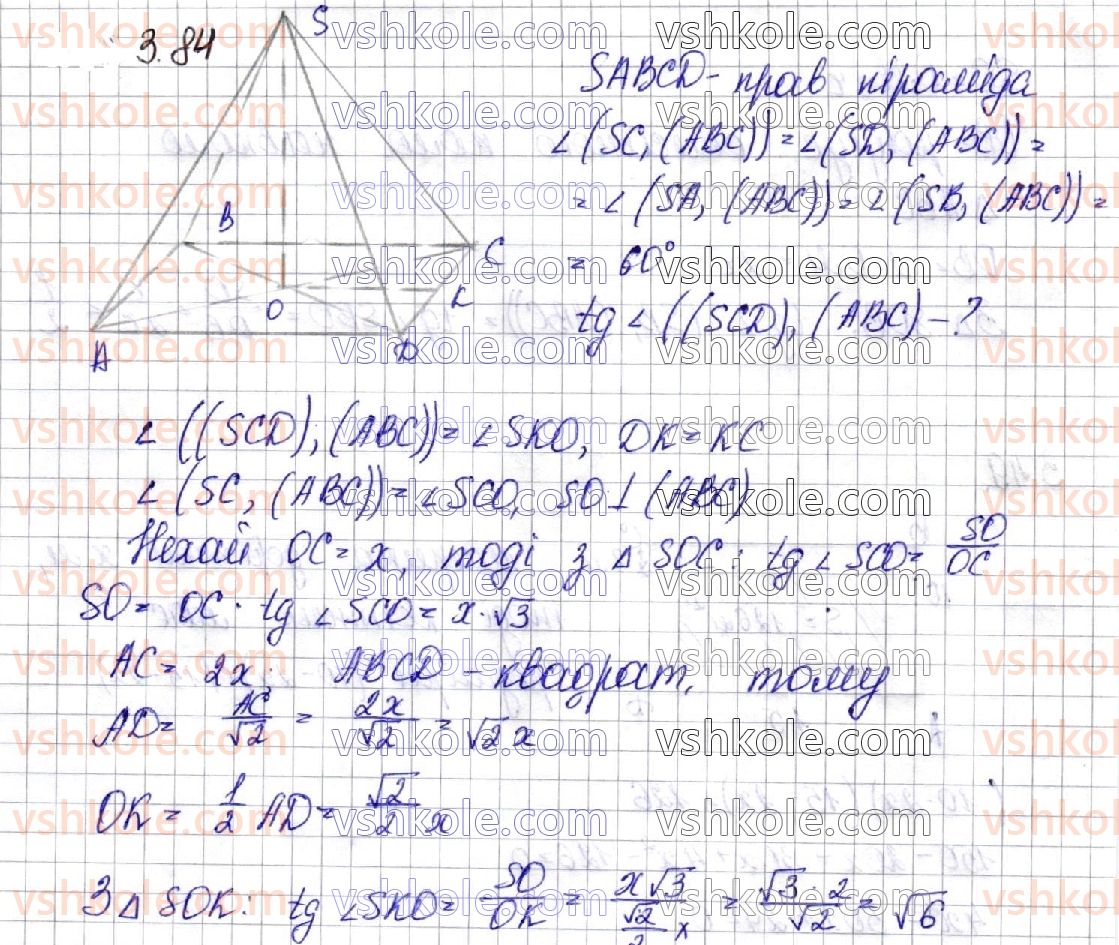 3.84
S
SABCD - прав піраміда
∠(SC, (ABC)) = ∠(SD, (ABC)) =
= ∠(SA, (ABC)) = ∠(SB, (ABC)) =
B
C
= 60°
O
K
tg ∠((SCD), (ABC) - ?
A
D
∠((SCD), (ABC)) = ∠SKO, DK = KC
∠(SC, (ABC)) = ∠SCO, SO ⊥ (ABC)
Нехай OC = x, тоді з △ SOC : tg ∠ SCO = SO/OC
SO = OC · tg ∠SCO = x · √3
AC = 2x; ABCD - квадрат, тому
AD = AC/√2 = 2x/√2 = √2 x
OK = 1/2 AD = √2/2 x
З △ SOK: tg ∠SKO = SO/OK = x√3/(√2/2 x) = √3 · 2/√2 = √6
vshkole.com